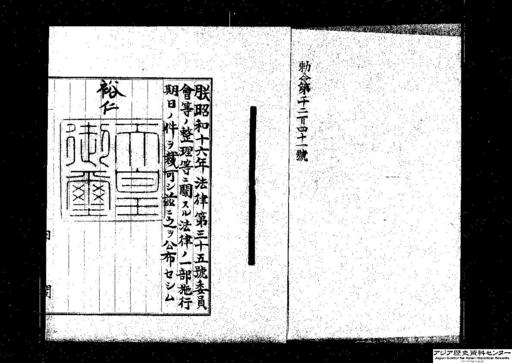 勅令第千二百四十一號
朕昭和十六年法律第三十五號委員
會等ノ整理等ニ關スル法律ノ一部施行
期日ノ件ヲ裁可シ茲ニ之ヲ公布セシム
裕仁
天皇
御璽
内
閣
アジア歴史資料センター
Japan Center for Asian Historical Records